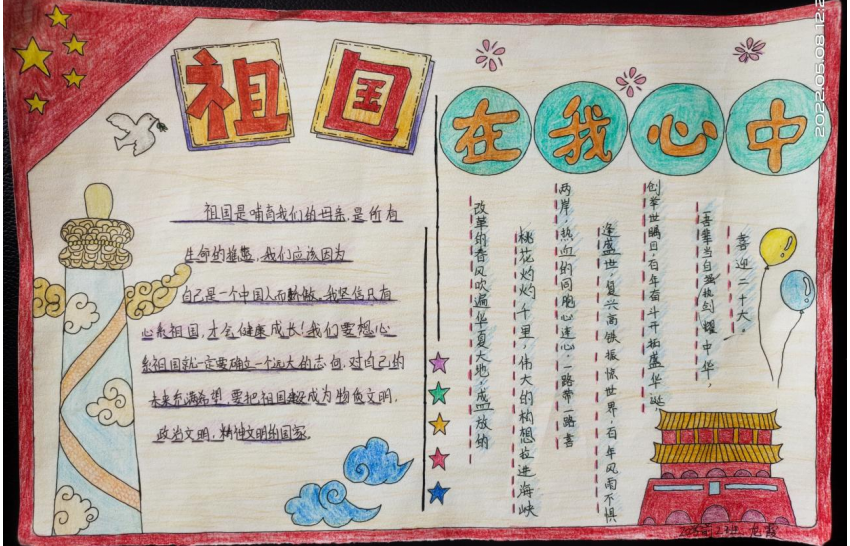 祖国在我心中
2022.05.08 12:2
祖国是哺育我们的母亲,是所有
生命的摇篮,我们应该因为
自己是一个中国人而骄傲。我坚信只有
心系祖国,才会健康成长!我们要想心
系祖国就一定要确立一个远大的志向,对自己的
未来充满希望,要把祖国建成为物质文明,
政治文明,精神文明的国家。
喜迎二十大,
吾辈当自强执剑耀中华,
创举世瞩目,百年奋斗开拓盛华诞,
逢盛世,复兴高铁振惊世界,百年风雨不惧
两岸,热血的同胞心连心,一路带一路喜
桃花灼灼千里,伟大的构想拉进海峡
改革的春风吹遍华夏大地,盛放的